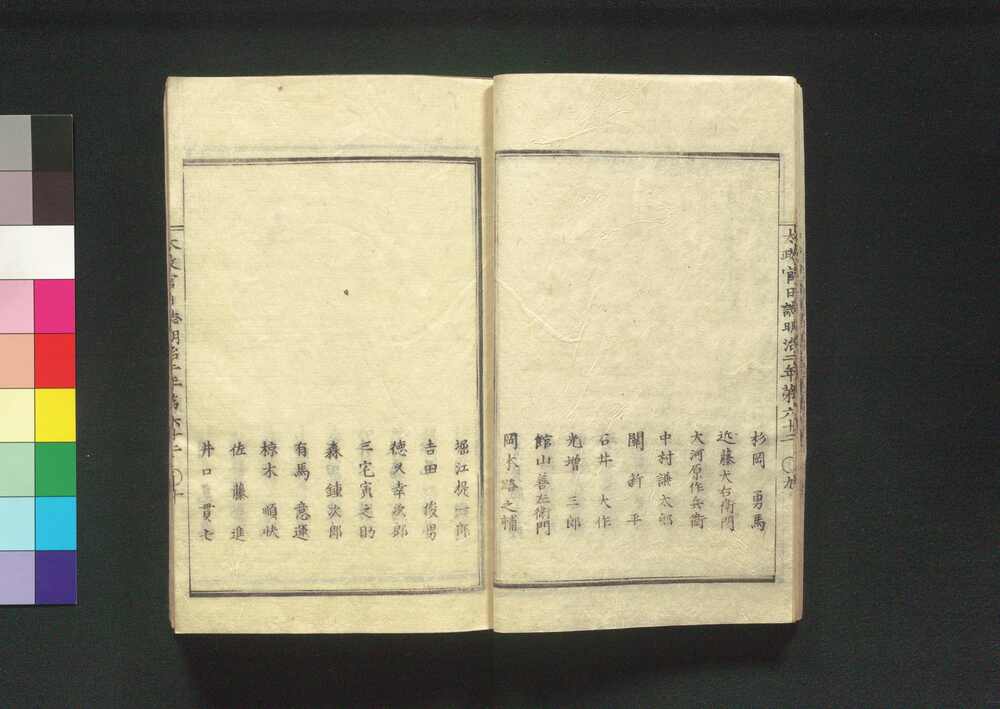 太政官日誌明治二年第六十二 〇九
杉岡 勇馬
近藤犬右衛門
大河原作兵衛
中村謙太郎
關 新平
石井 大作
光増 三郎
館山善左衛門
岡本路之補
堀江提一郎
吉田 俊男
徳久幸次郎
三宅寅之助
森 鍾次郎
有馬 意運
椋木 順状
佐藤 進
井口 貫
太政官日誌明治二年第六十二 〇十